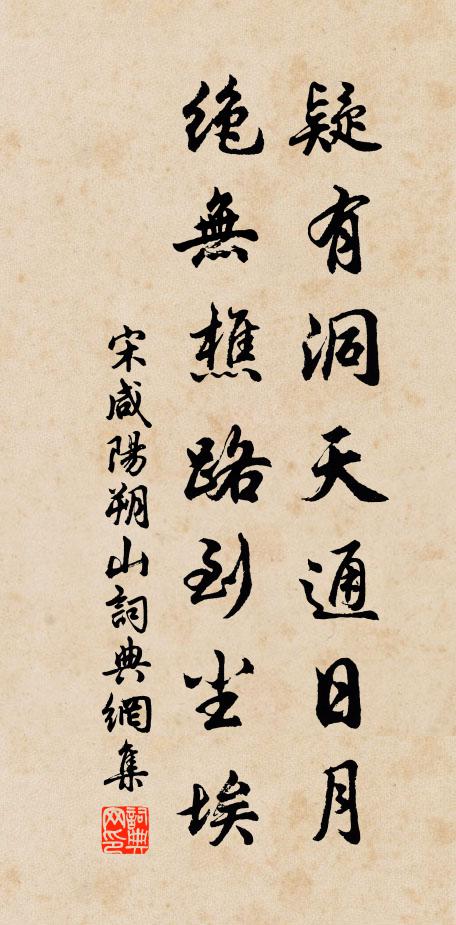 疑有洞天通日月
绝無樵路到尘埃
宋咸陽朔山詞典網集
詞典网印